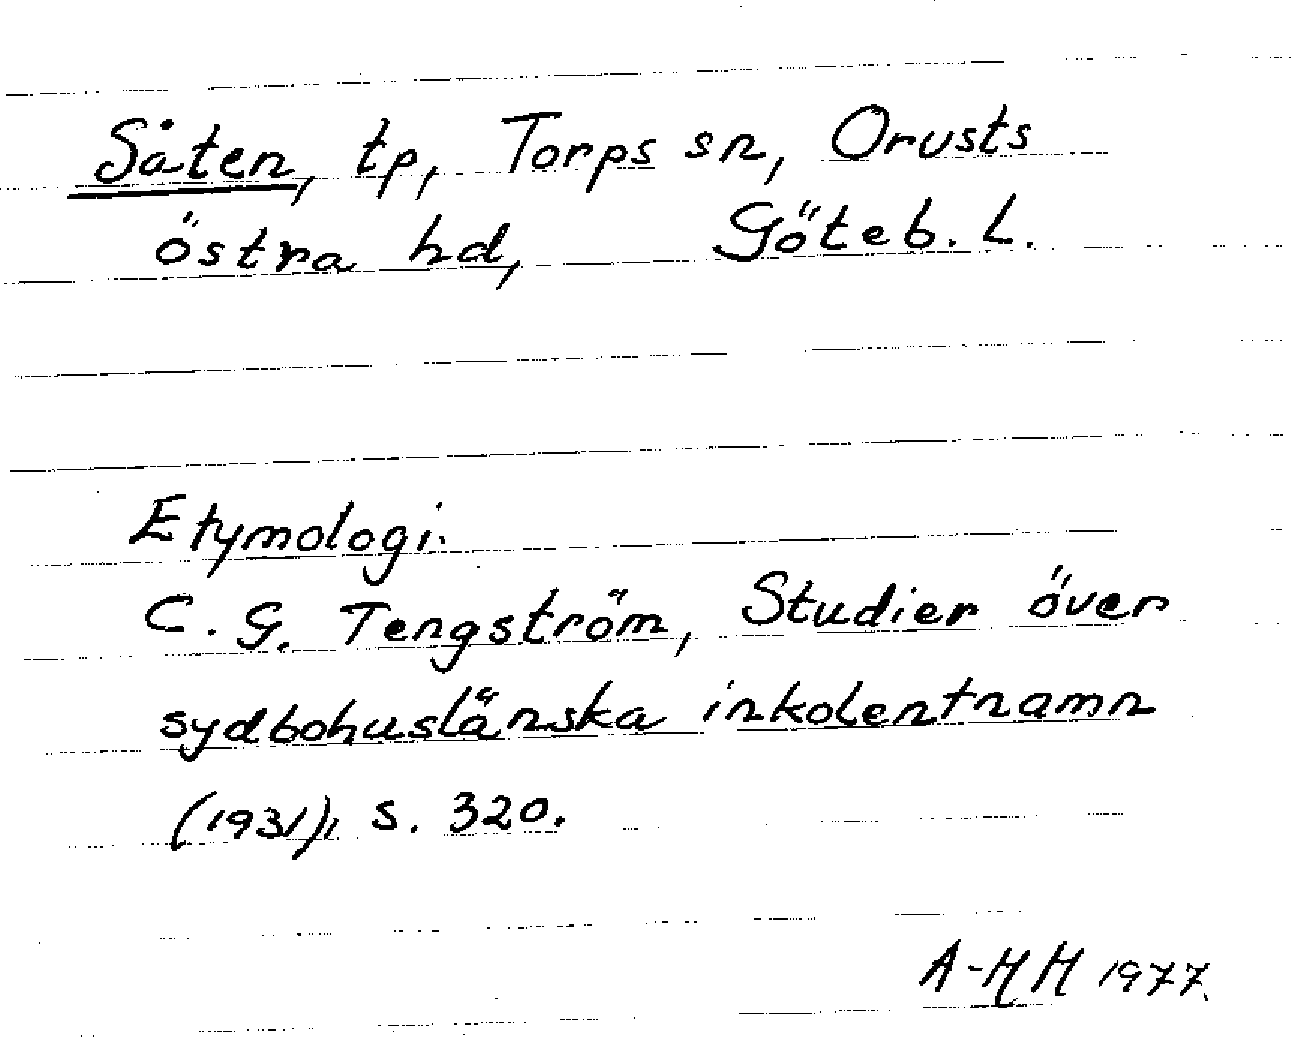 Såten, tp, Torps sn, Orusts
östra hd, Göteb. L.
Etymologi.
C. G. Tengström, Studier över
sydbohuslänska inkolentnamn
(1931), s. 320.
A-HH 1977